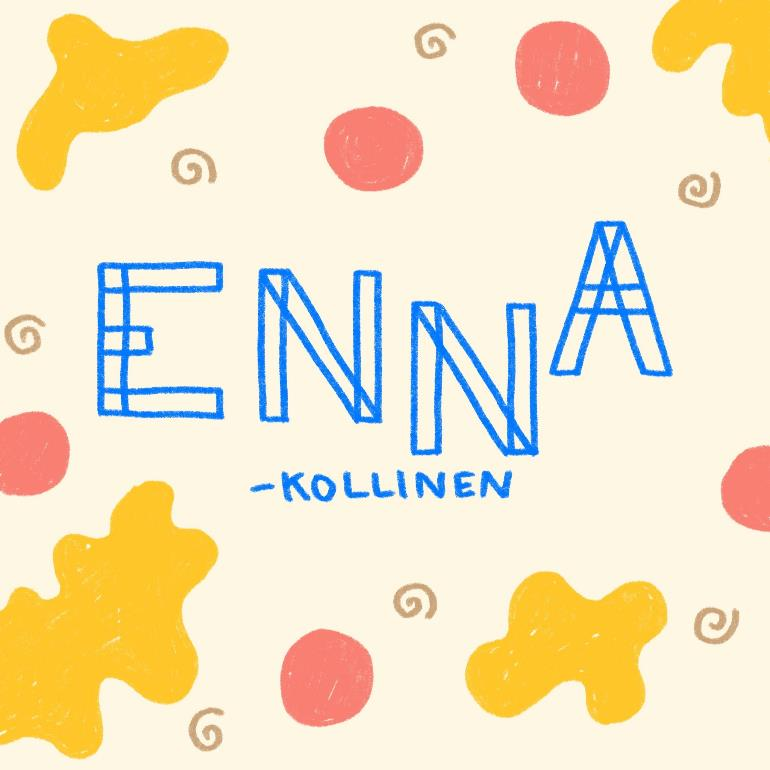 ENNA
-KOLLINEN